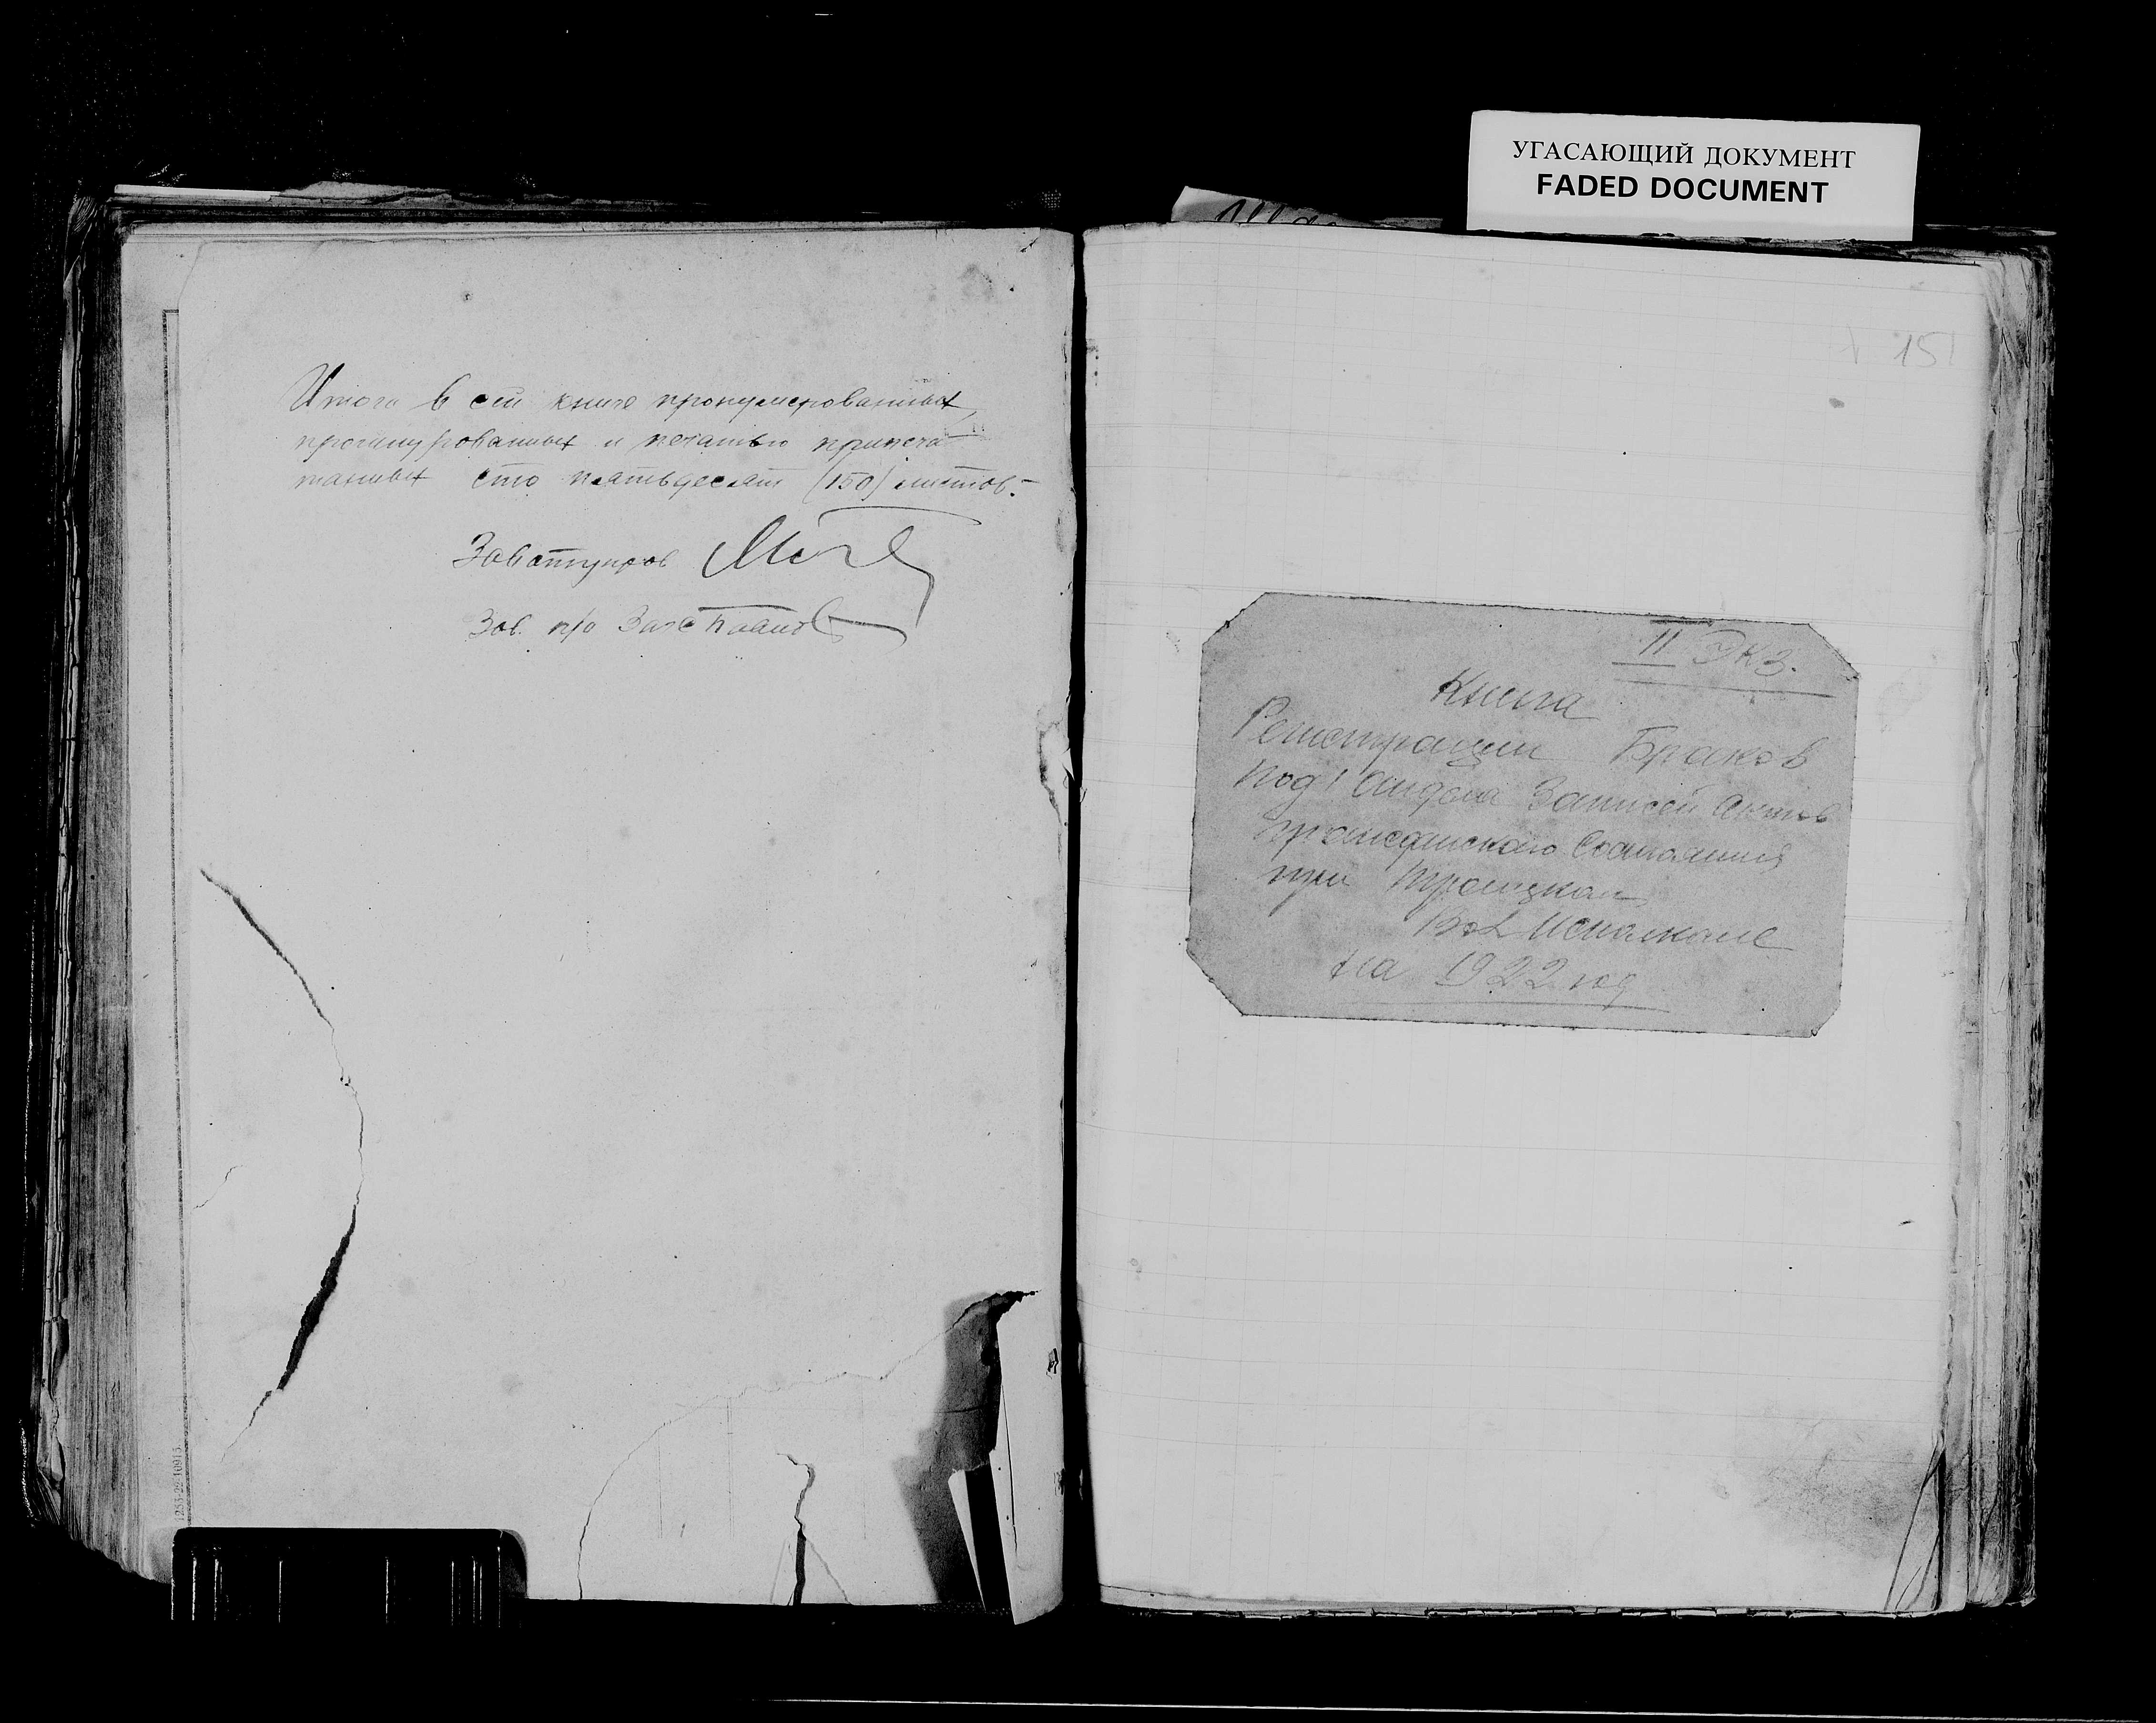 Итого в сей книге пронумерованных,
прошнурованных и печатью припеча-
танных сто пятьдесят (150) листов.-
Зав п/о
1253-22-10915
УГАСАЮЩИЙ ДОКУМЕНТ
FADED DOCUMENT
151
II Экз.
Книга
Регистрации Браков
Под'Отдела Записей Актов
гражданского Состояния
при Троицком
Вол Исполкоме
на 1922 год